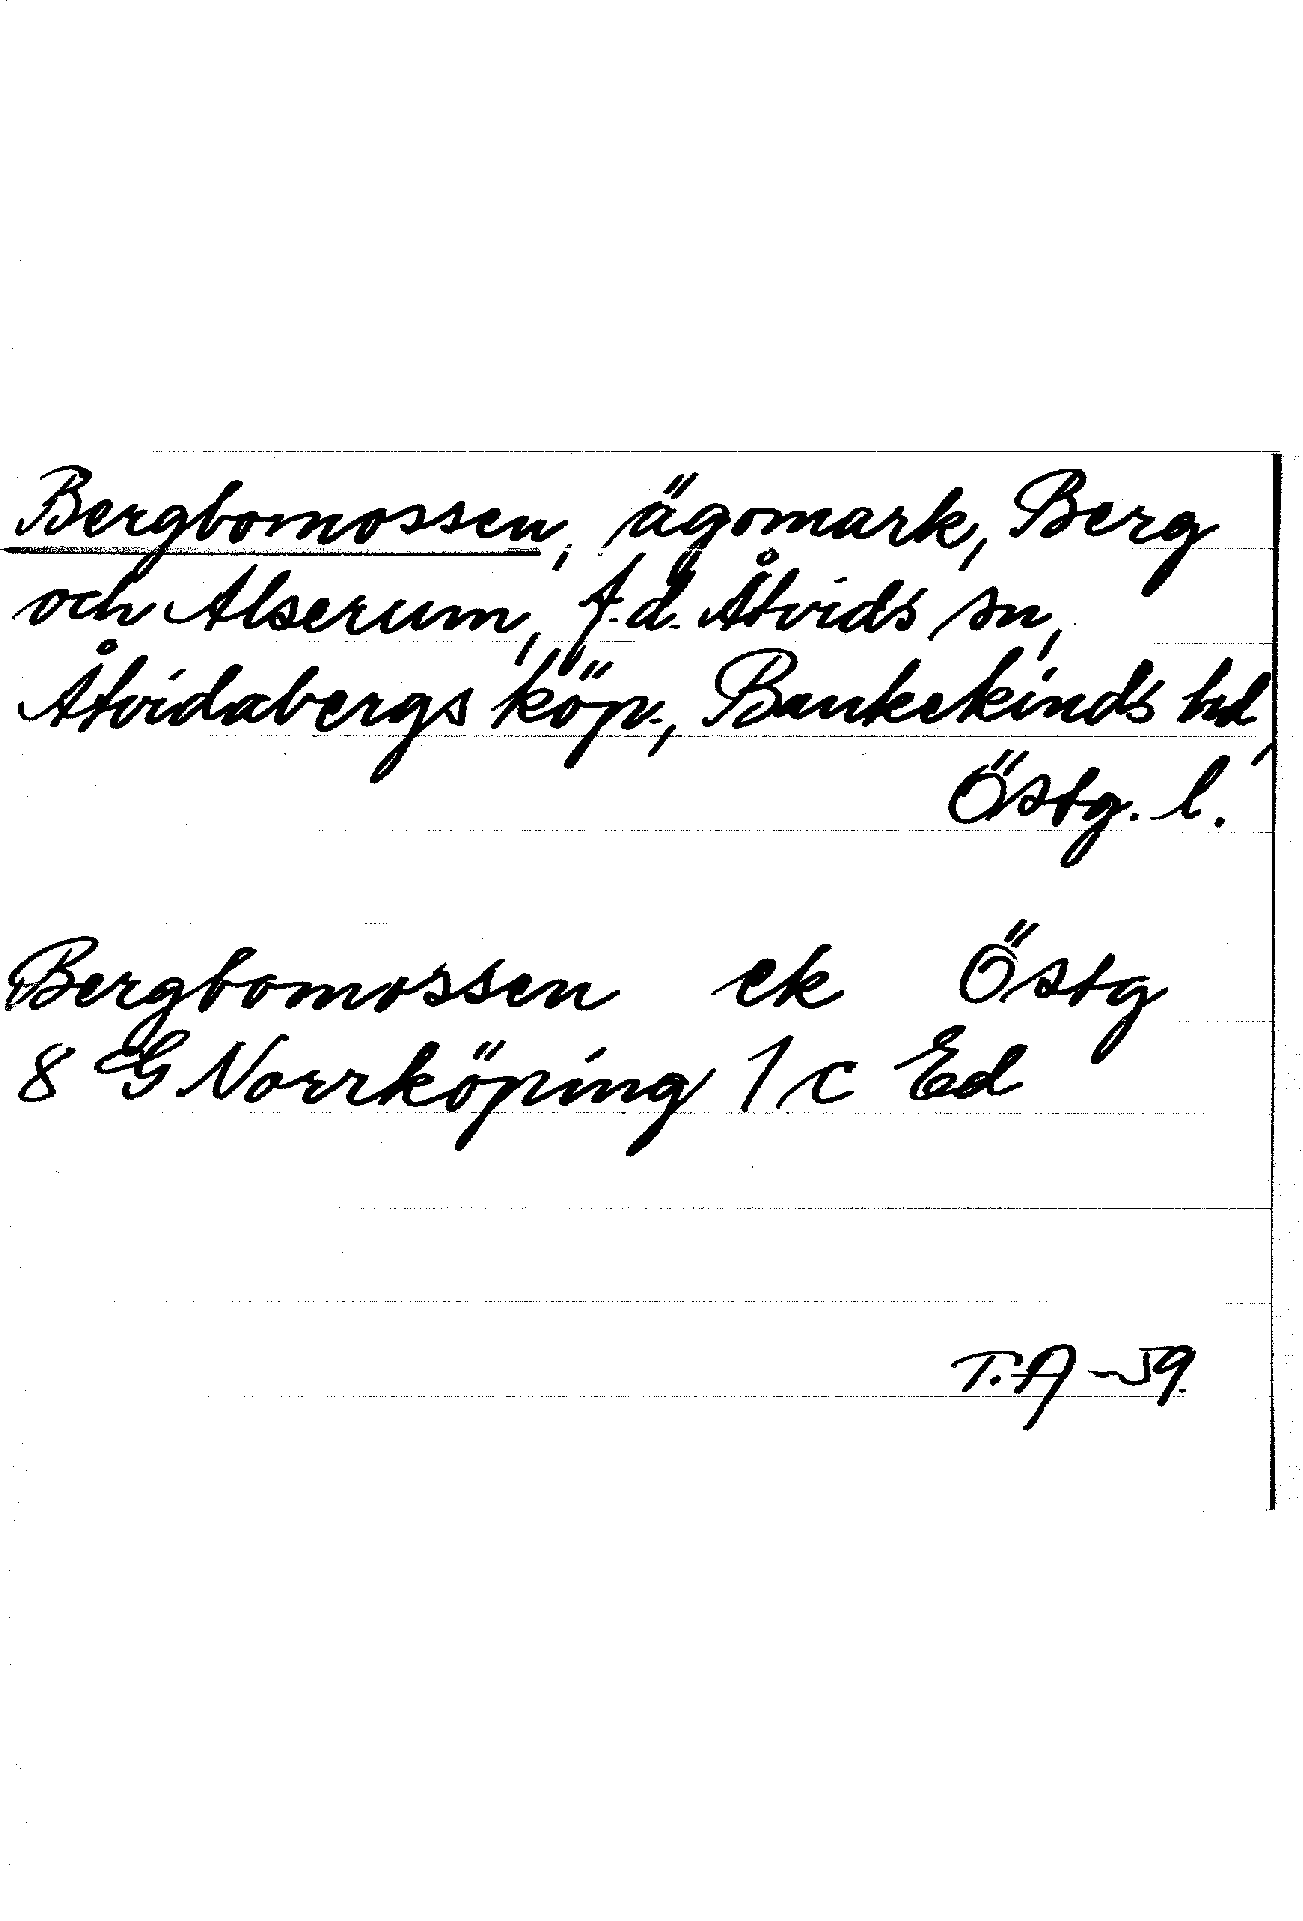 Bergbomossen, ägomark, Berg
och Alserum, f.d. Åtvids sn,
Åtvidabergs köp., Bankekinds hd,
Östg. l.
Bergbomossen ek Östg
8 G Norrköping 1 c Ed
T.A -59.